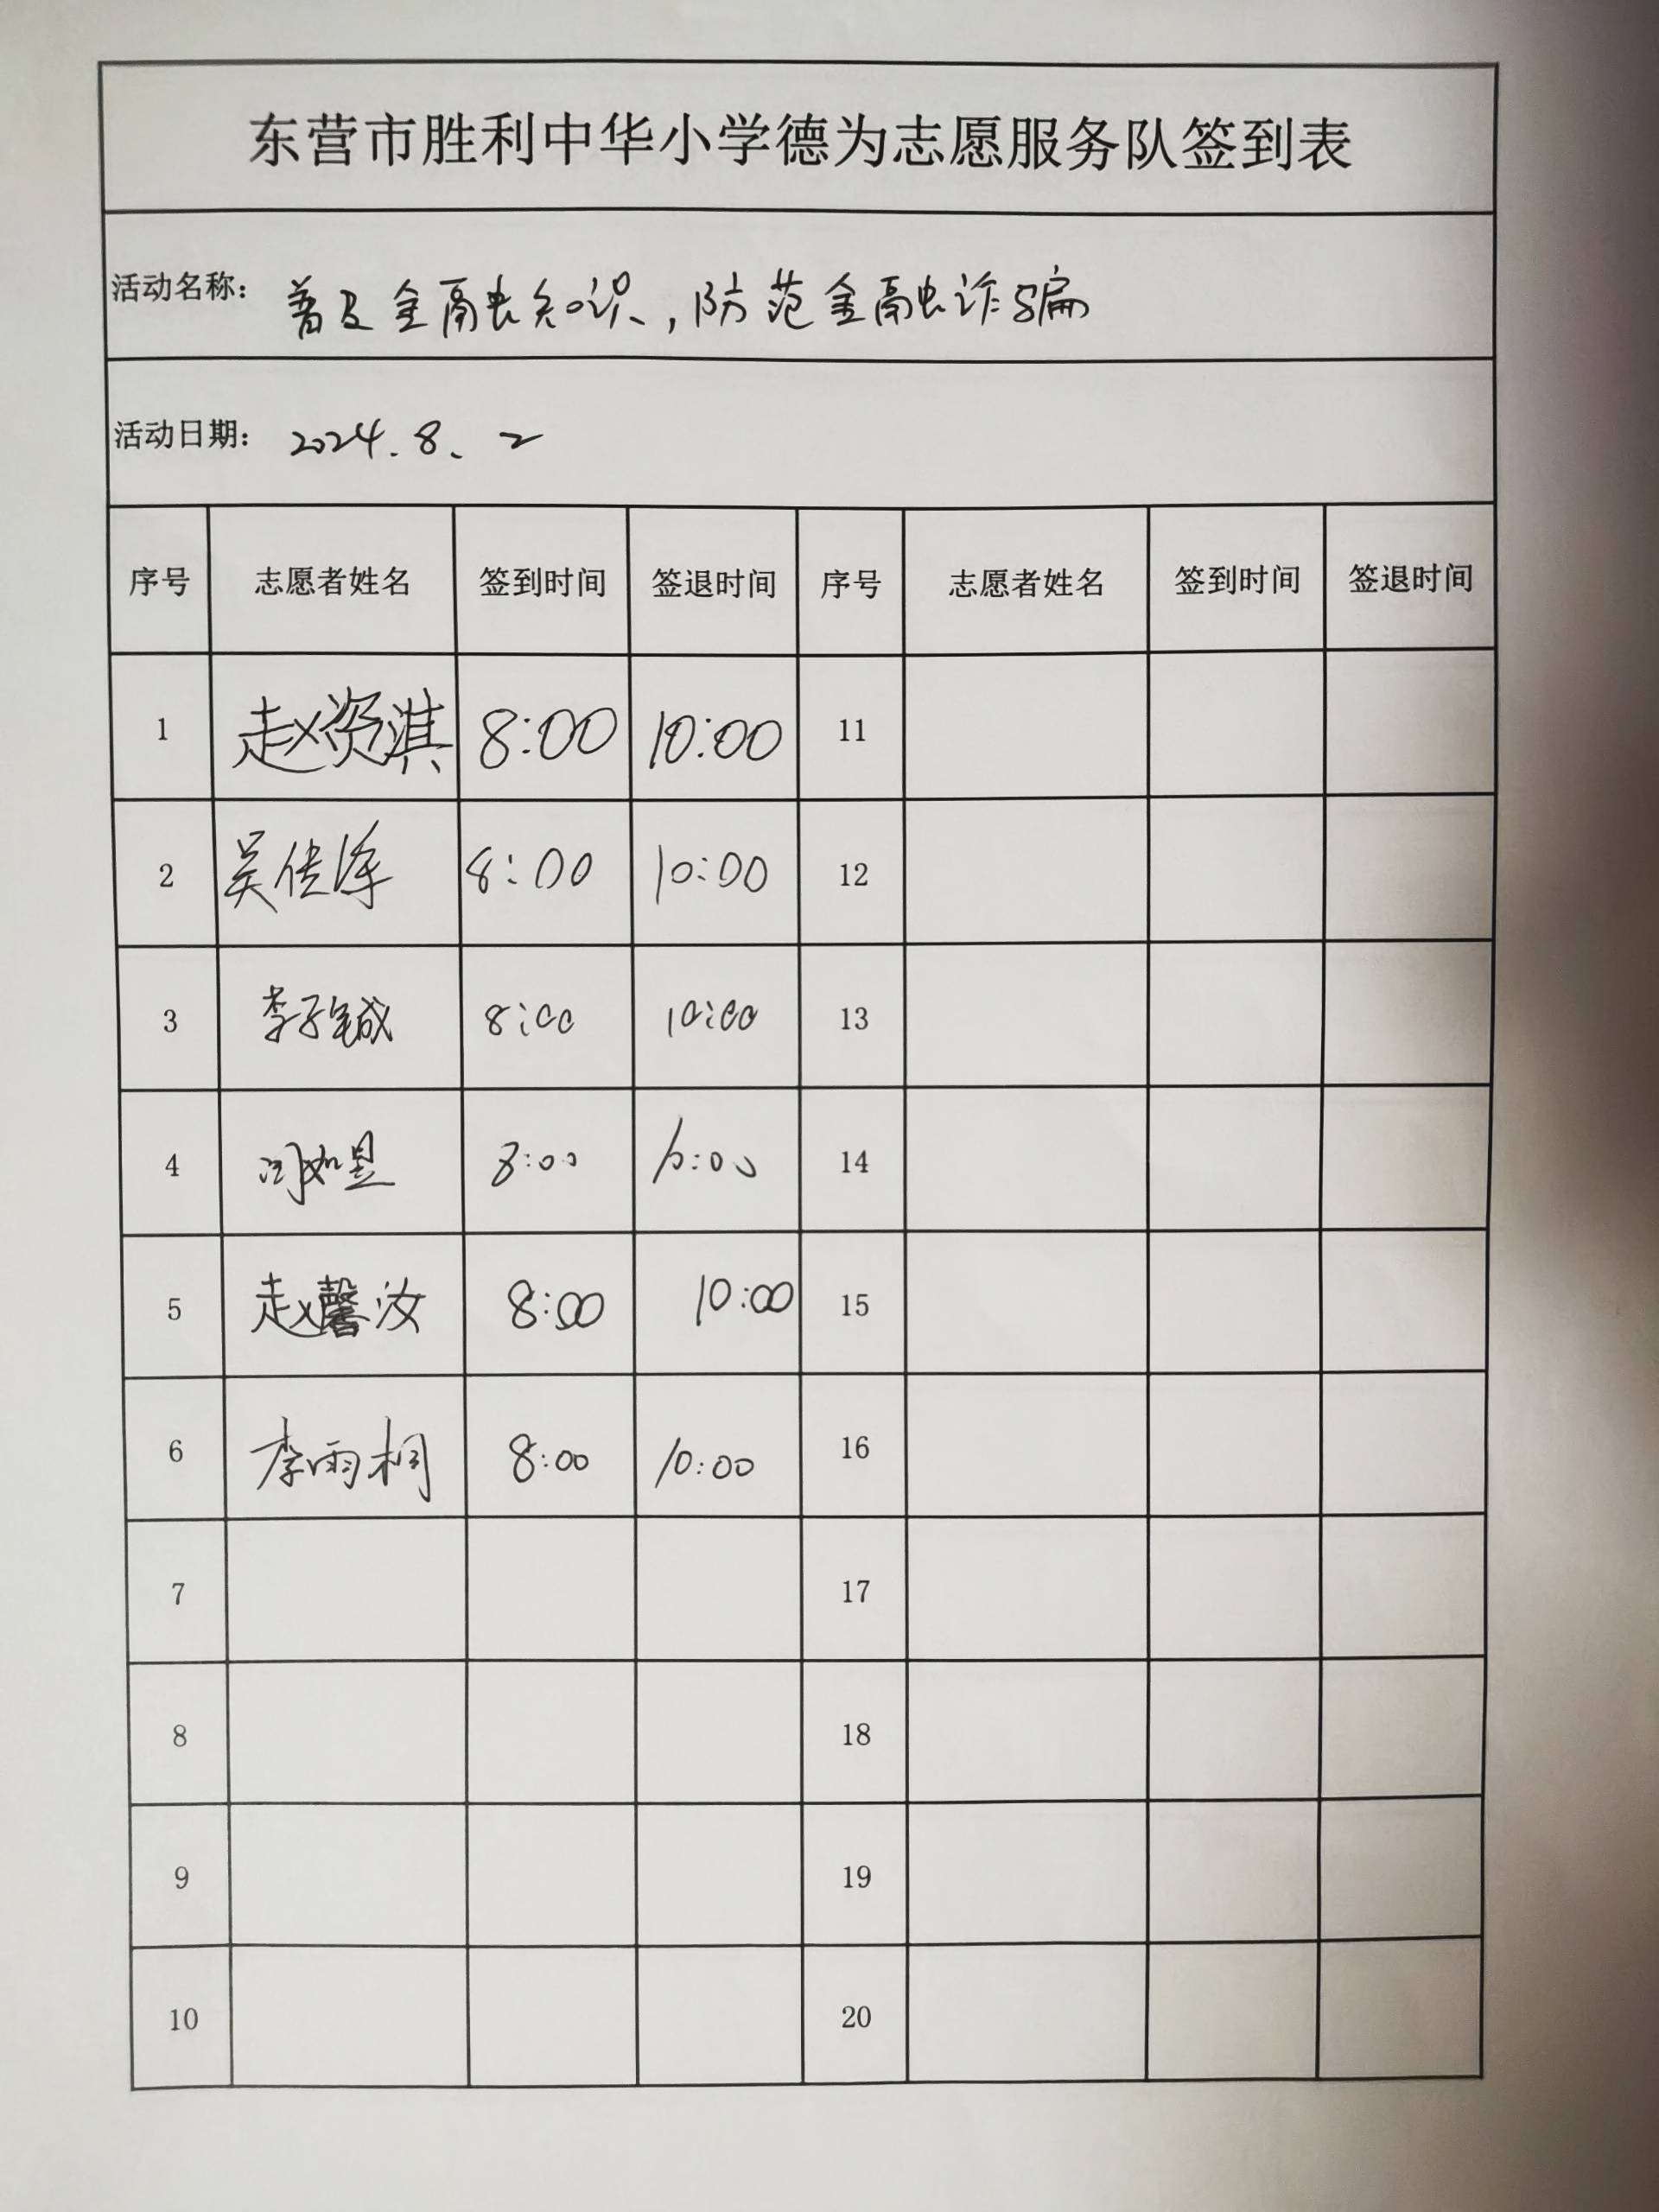 东营市胜利中华小学德为志愿服务队签到表
活动名称: 普及金融知识,防范金融诈骗
活动日期: 2024.8.2
序号 志愿者姓名 签到时间 签退时间 序号 志愿者姓名 签到时间 签退时间
1 赵资淇 8:00 10:00 11
2 吴佳泽 8:00 10:00 12
3 李子铖 8:00 10:00 13
4 闫如昱 8:00 10:00 14
5 赵馨汝 8:00 10:00 15
6 李雨桐 8:00 10:00 16
7 17
8 18
9 19
10 20